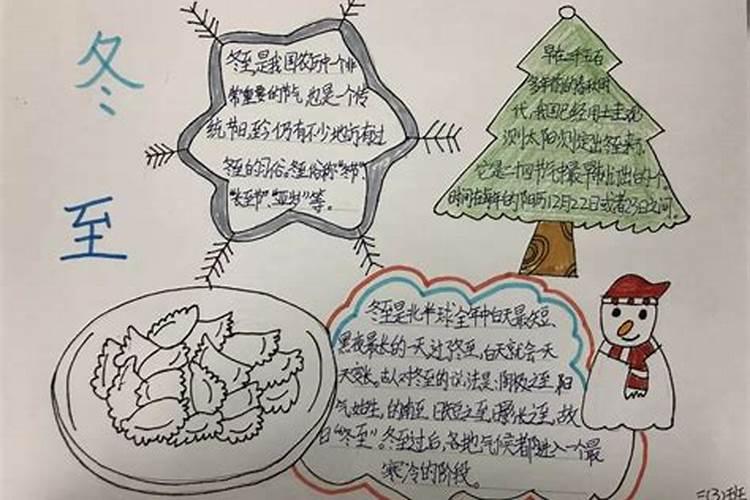 冬
至
冬至,是我国农历中一个非
常重要的节气,也是一个传
统节日,至今仍有不少地方有过
冬至的习俗。冬至俗称“冬节”、
“长至节”、“亚岁”等。
早在二千五百
多年前的春秋时
代,我国已经用土圭观
测太阳测定出冬至来了,
它是二十四节气中最早制订出的一个。
时间在每年的阳历12月22日或者23日之间。
冬至是北半球全年中白天最短、
黑夜最长的一天,过了冬至,白天就会一天
天变长。古人对冬至的说法是:阴极之至,阳
气始生,日南至,日短之至,影长之至,故
曰“冬至”。冬至过后,各地气候都进入一个最
寒冷的阶段。
三(3)班